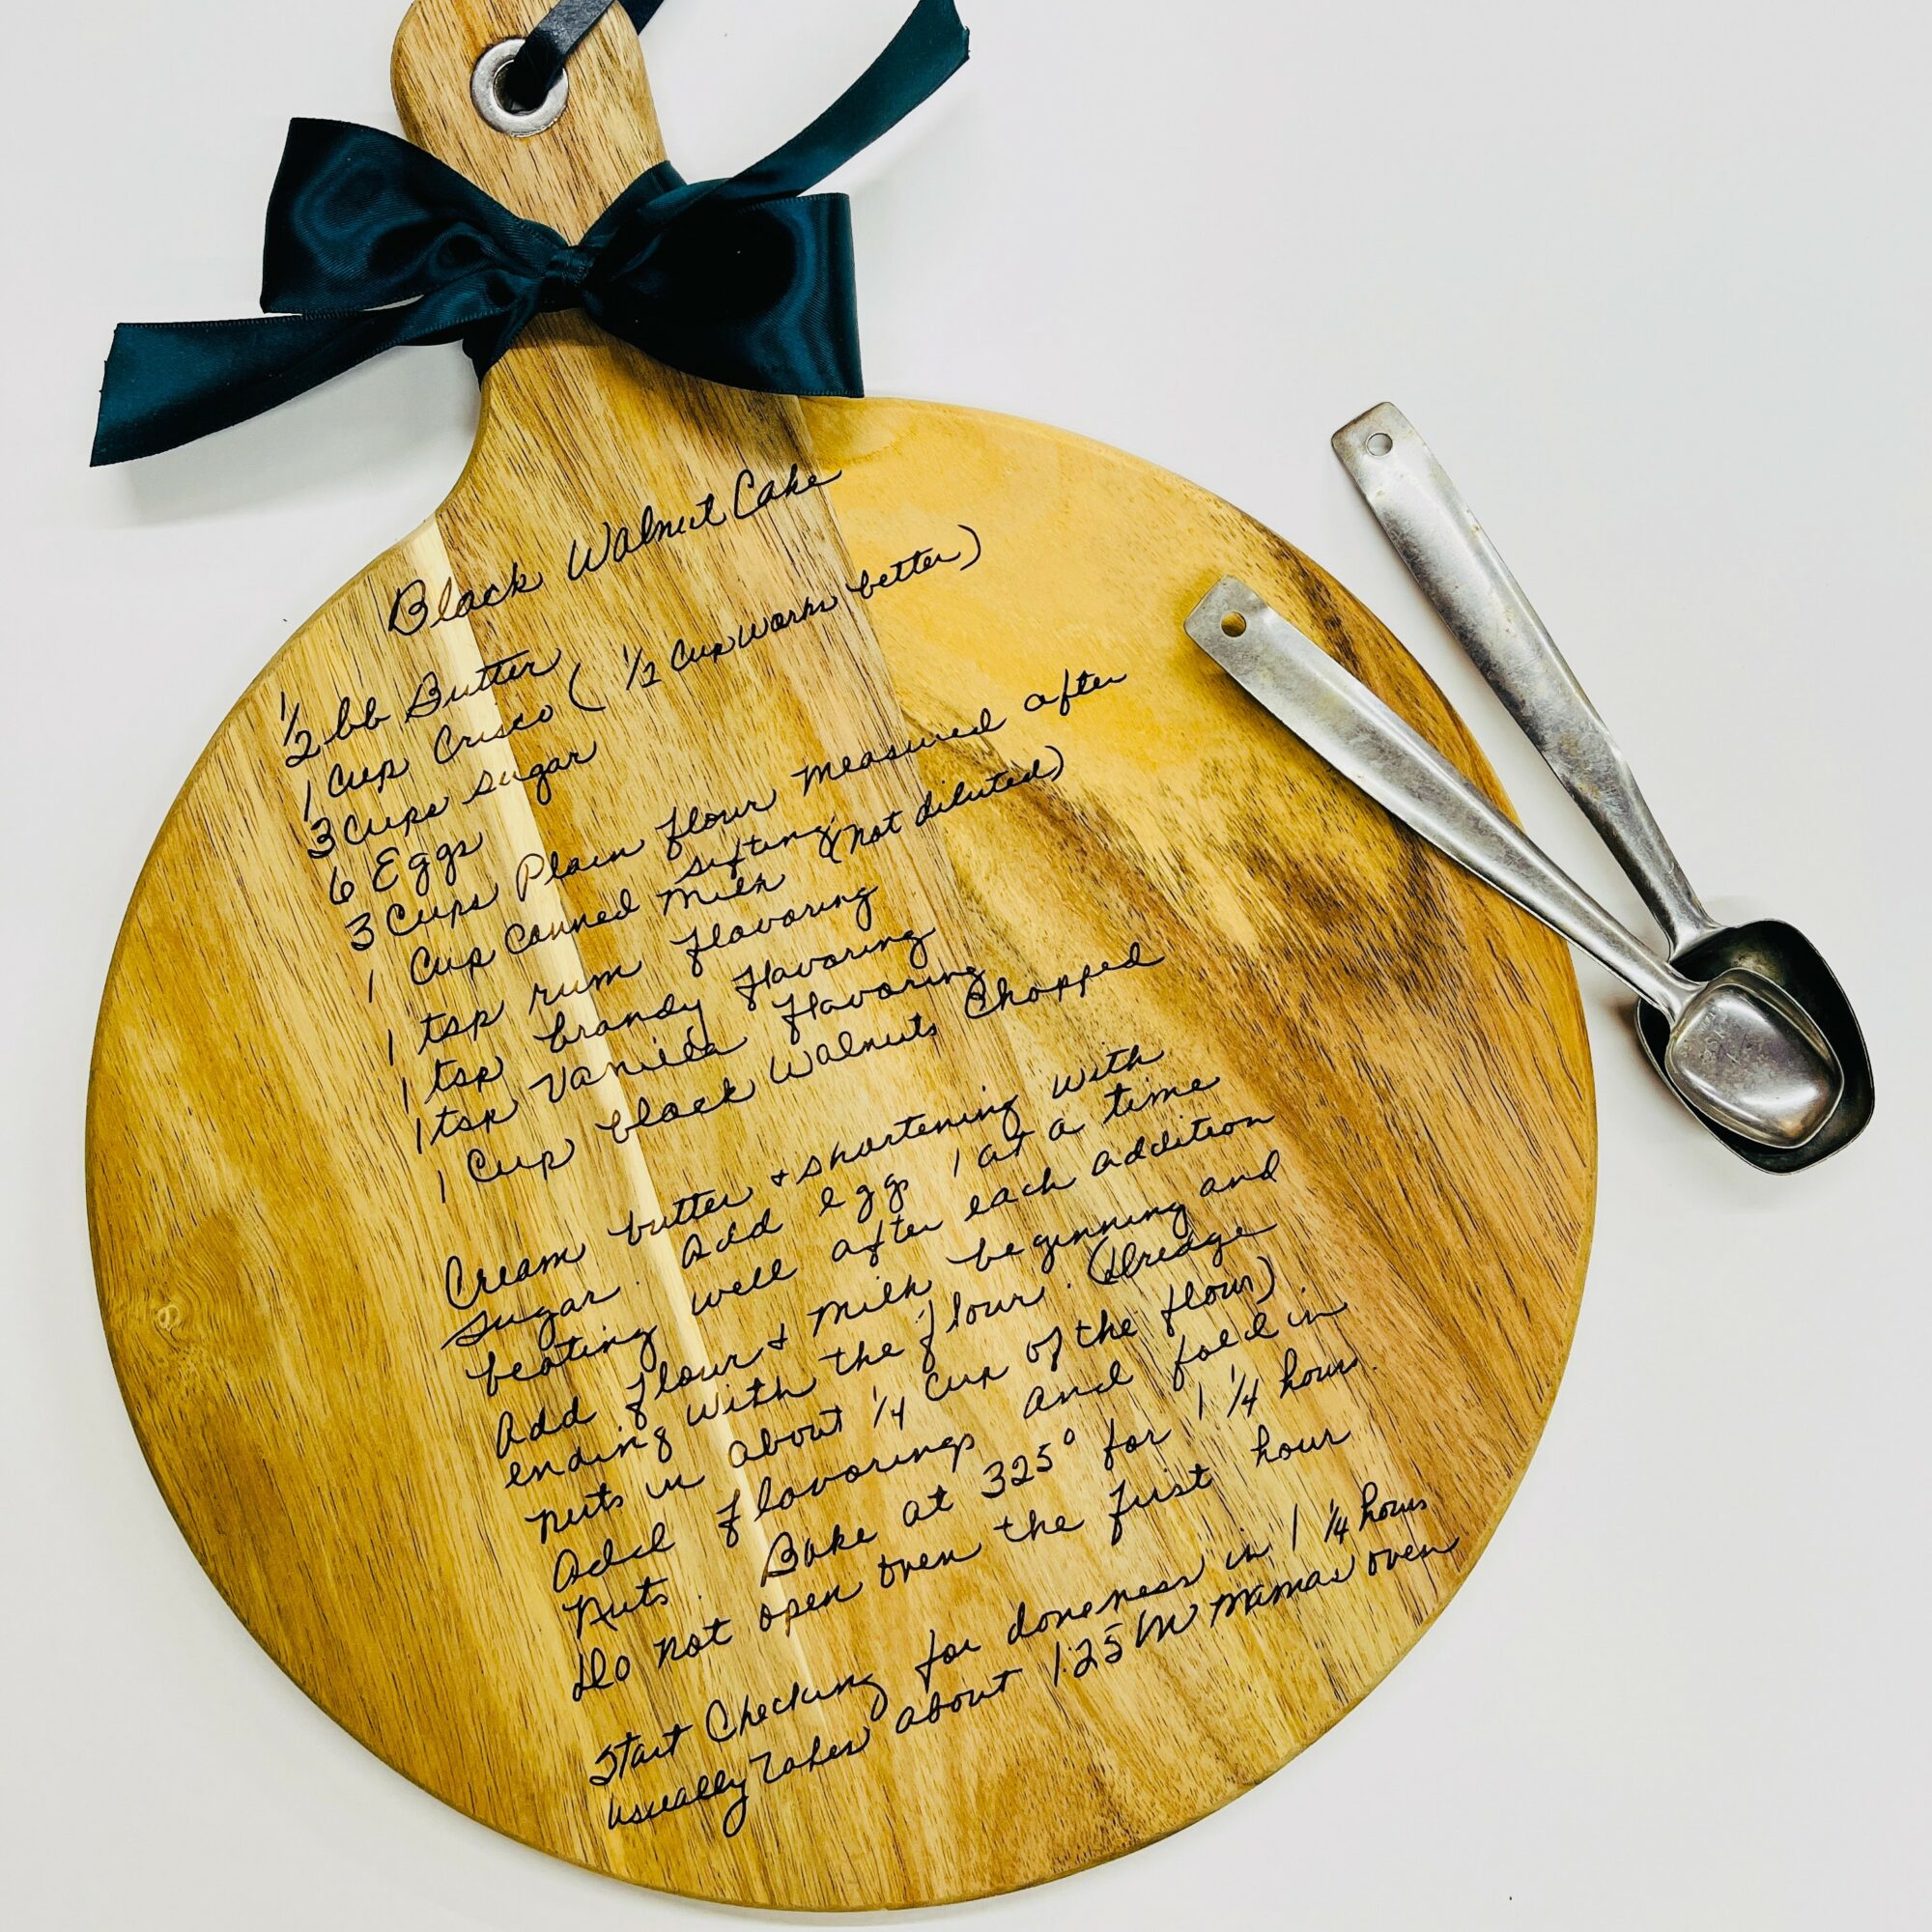 Black Walnut Cake
1/2 lb Butter
1 Cup Crisco ( 1/2 Cup works better)
3 Cups sugar
6 Eggs
3 Cups Plain flour measured after
sifting
1 Cup Canned Milk (not diluted)
1 tsp rum flavoring
1 tsp brandy flavoring
1 tsp Vanilla flavoring
1 Cup black walnuts Chopped
Cream butter + shortening with
sugar. Add egg 1 at a time
beating well after each addition
Add flour + milk beginning and
ending with the flour. (Dredge
nuts in about 1/4 cup of the flour)
Add flavorings and fold in
nuts. Bake at 325° for 1 1/4 hours.
Do not open oven the first hour
Start Checking for doneness in 1 1/4 hours
usually takes about 1:25 in mamas oven